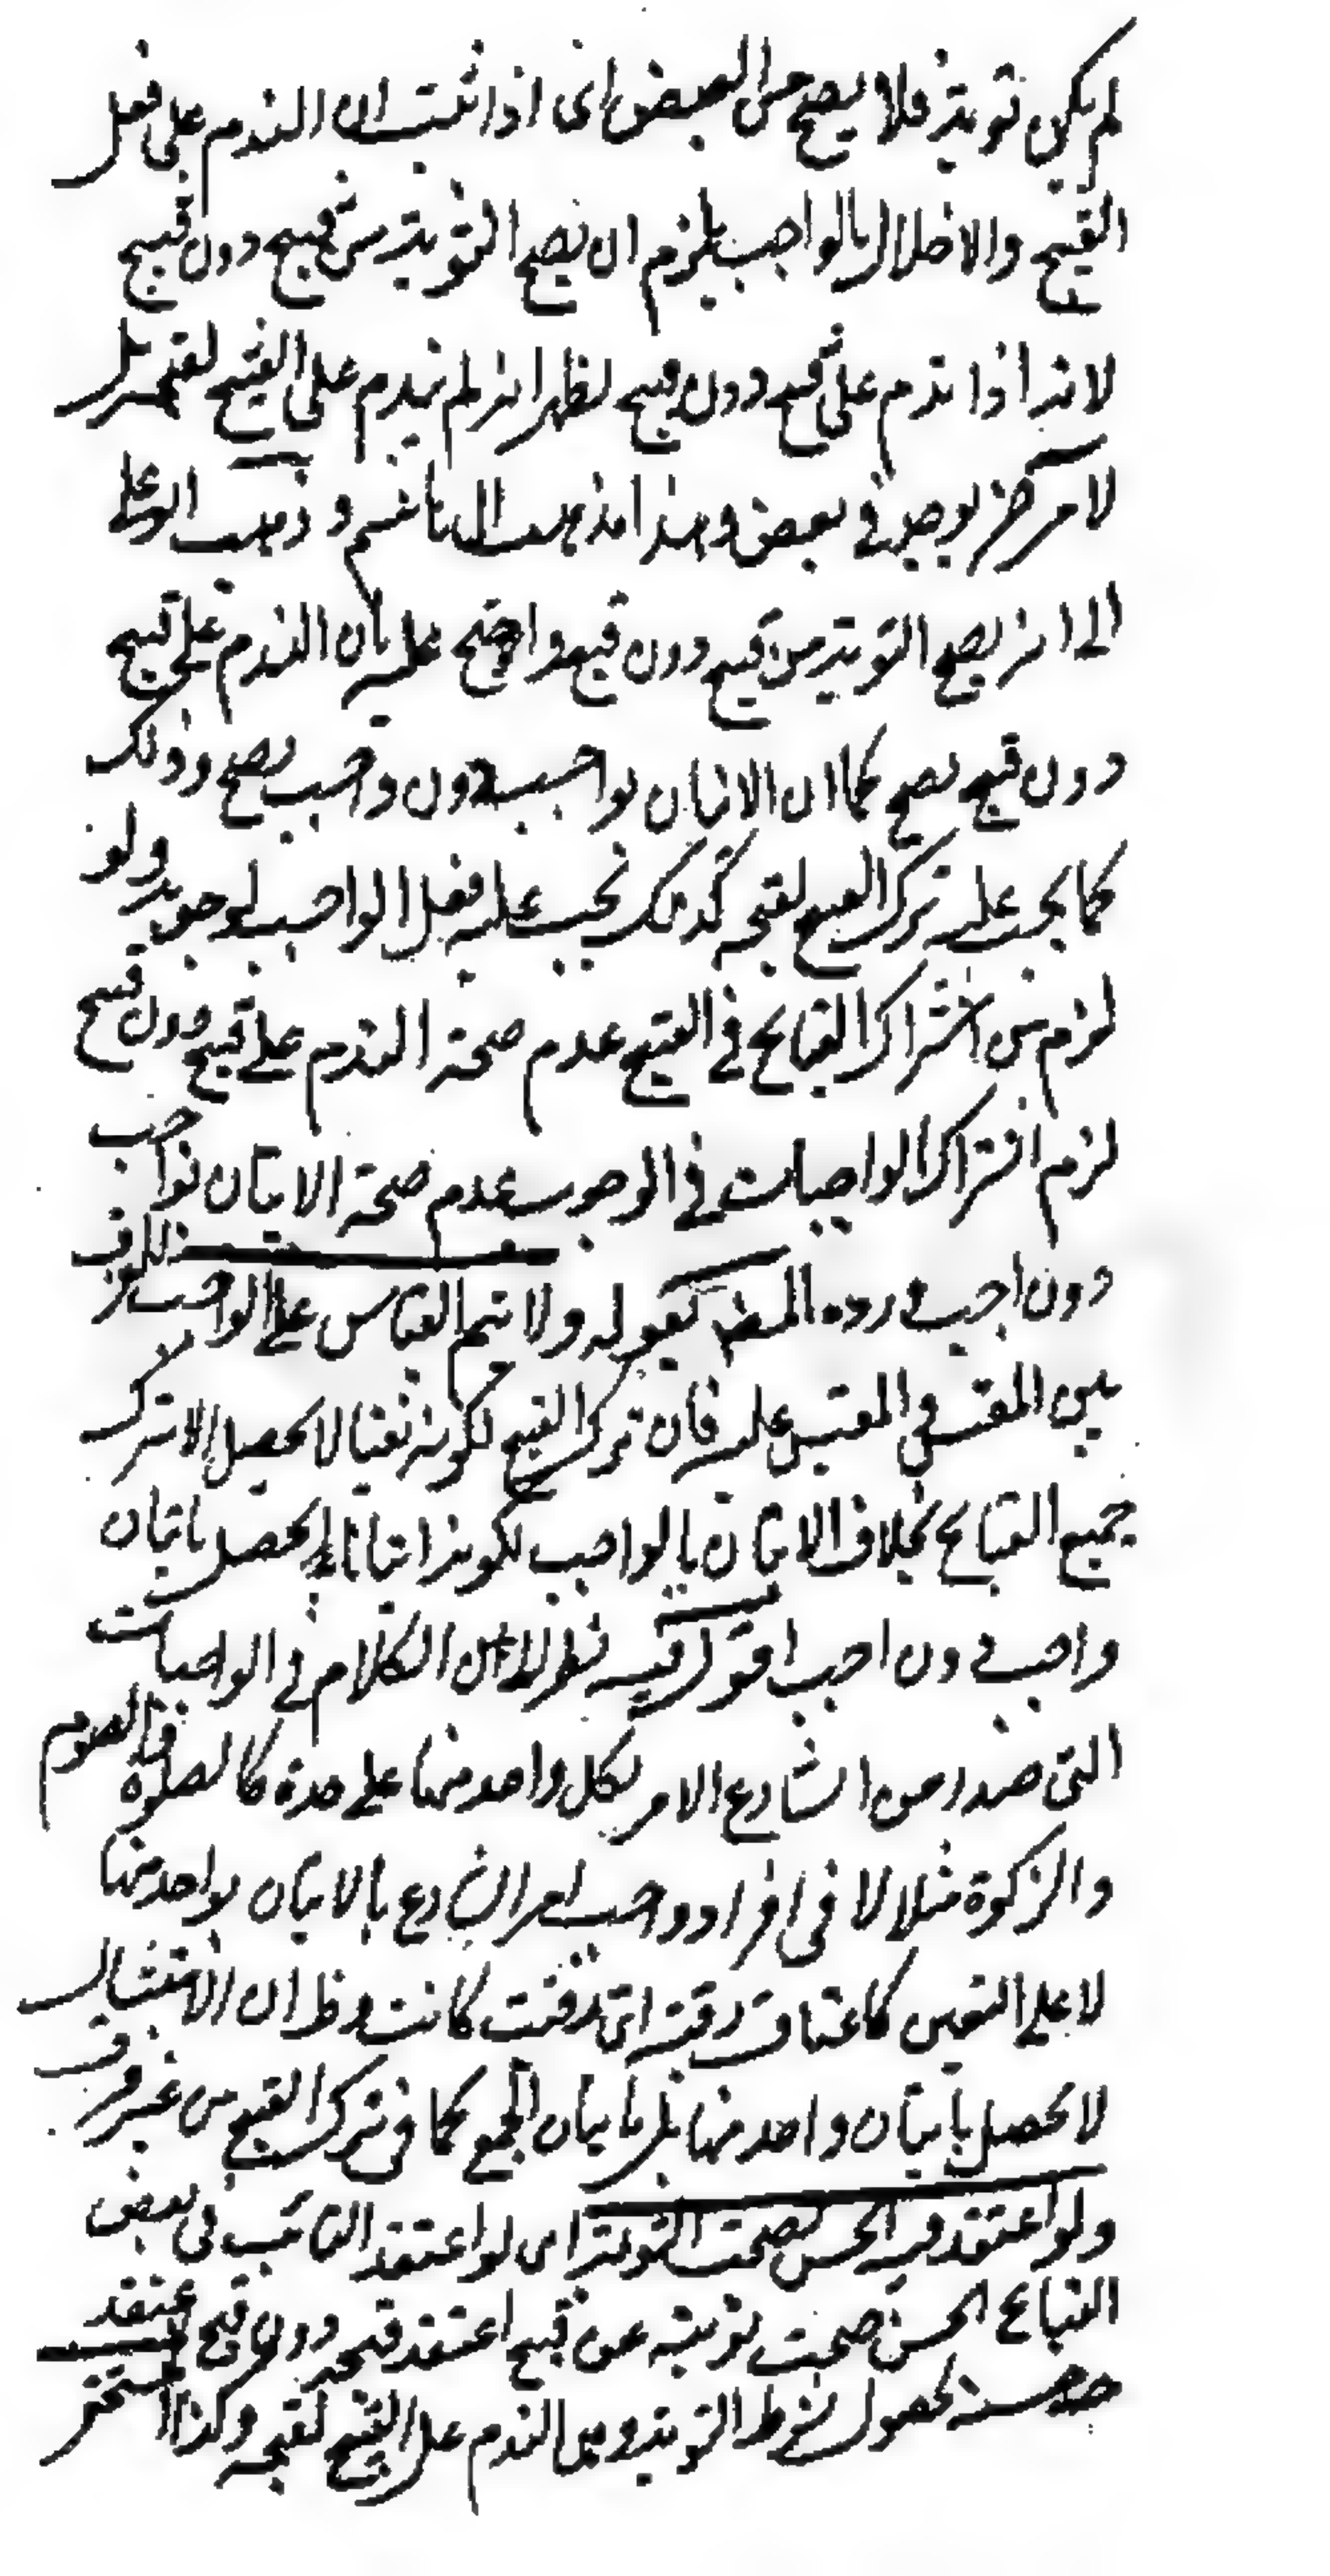 لم يكن توبة فلا يصح من البعض اى اذا ثبت ان الندم على فعل
القبيح والاخلال بالواجب يلزم ان يصح التوبة من قبيح دون قبيح
لانه اذا ندم على قبيح دون قبيح لظهر انه لم يندم على القبيح لقبحه بل
لامر آخر يوجد فى بعض وهذا مذهب ابى هاشم و ذهب ابو على
الى انه يصح التوبة من قبيح دون قبيح واحتج عليه بان الندم على قبيح
دون قبيح يصح كما ان الاتيان بواجب دون واجب يصح وذلك
كما يجب عليه ترك القبيح لقبحه كذلك يجب عليه فعل الواجب لوجوبه ولو
لزم من اشتراك القبايح فى القبح عدم صحة الندم على قبيح دون قبيح
لزم اشتراك الواجبات فى الوجوب عدم صحة الاتيان بواجب
دون اجب ورده المصنف بقوله ولا يتم القياس على الواجب للفرق
بين المقيس والمقيس عليه فان ترك القبيح لكونه نفيا لا يحصل الا بترك
جميع القبايح بخلاف الاتيان بالواجب لكونه اثباتا يحصل باتيان
واجب دون اجب اقول فيه نظر لان الكلام فى الواجبات
التى صدر من الشارع الامر بكل واحد منها على حدة كالصلوة والصوم
والزكوة مثلا لا فى افراد واجب امر الشارع بالاتيان بواحد منها
لا على التعيين كاعتاق رقبة اى رقبة كانت وظ ان الامتثال
لا يحصل باتيان واحد منها بل باتيان الجميع كما فى ترك القبيح من غير فرق
ولو اعتقد فيه الحسن لصحت التوبة اى لو اعتقد التائب فى بعض
القبايح الحسن صحت توبته عن قبيح اعتقد قبحه دون قبيح اعتقد
حسنه لحصول شرط التوبة وهى الندم على القبيح لقبحه وكذا المستحقر